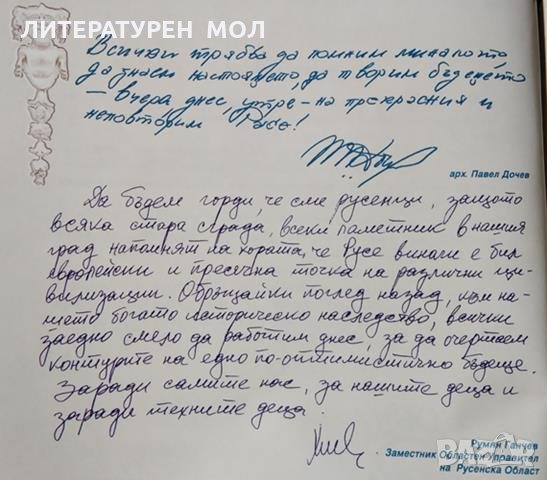 ЛИТЕРАТУРЕН МОЛ
Всички трябва да помним миналото,
да знаем настоящето, да творим бъдещето
– вчера, днес, утре – на прекрасния и
неповторим Русе!
арх. Павел Дочев
Да бъдем горди, че сме русенци, защото
всяка стара сграда, всеки паметник в нашия
град напомнят на хората, че Русе винаги е бил
европейски и пресечна точка на различни ци-
вилизации. Обръщайки поглед назад, към на-
шето богато историческо наследство, всички
заедно смело да работим днес, за да очертаем
контурите на едно по-оптимистично бъдеще.
Заради самите нас, за нашите деца и
заради техните деца.
Румян Ганчев
Заместник Областен Управител
на Русенска Област